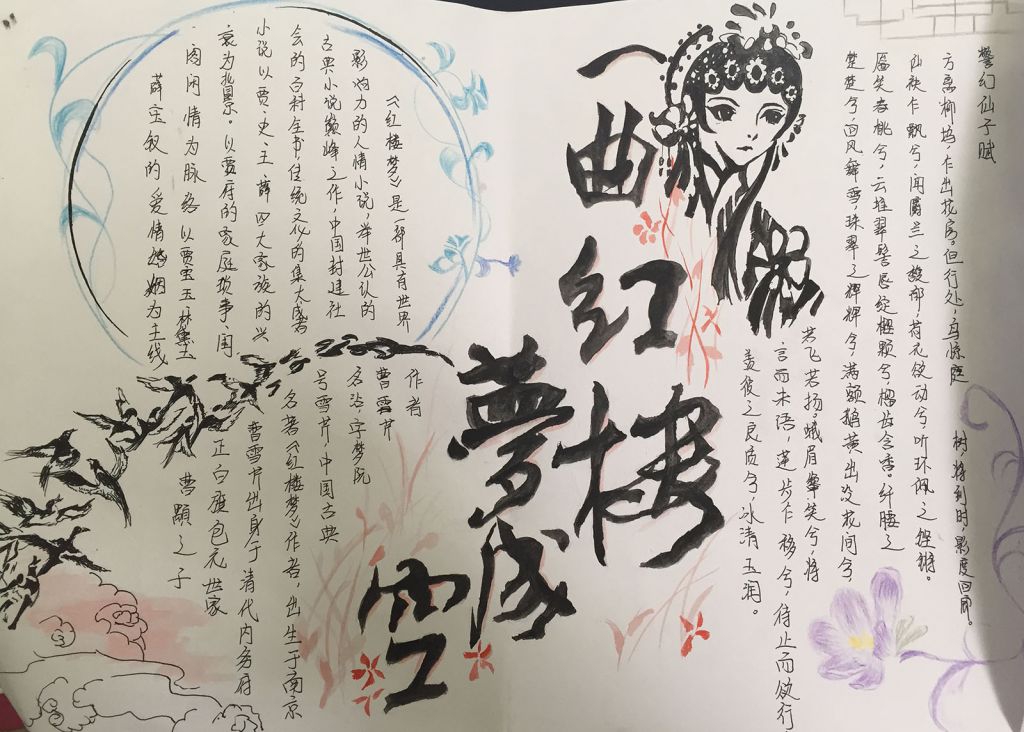 警幻仙子赋
方离柳坞,乍出花房。但行处,鸟惊庭
树将到时,影度回廊。
仙袂乍飘兮,闻麝兰之馥郁荷衣欲动兮,听环佩之铿锵。
靥笑春桃兮,云堆翠髻唇绽樱颗兮,榴齿含香。纤腰之
楚楚兮,回风舞雪,珠翠之辉辉兮,满额鹅黄出没花间兮,
若飞若扬。蛾眉颦笑兮,将
言而未语,莲步乍移兮,待止而欲行
羡彼之良质兮,冰清玉润。
一曲红楼
梦成空
作者
曹雪芹
名沾字梦阮
号雪芹,中国古典
名著《红楼梦》作者,出生于南京
曹雪芹出身于清代内务府
正白旗包衣世家
曹顒之子
《红楼梦》是一部具有世界
影响力的人情小说,举世公认的
古典小说巅峰之作,中国封建社
会的百科全书,传统文化的集大成者
小说以贾、史、王、薛四大家族的兴
衰为背景。以贾府的家庭琐事、闺
阁闲情为脉络以贾宝玉林黛玉
薛宝钗的爱情婚姻为主线